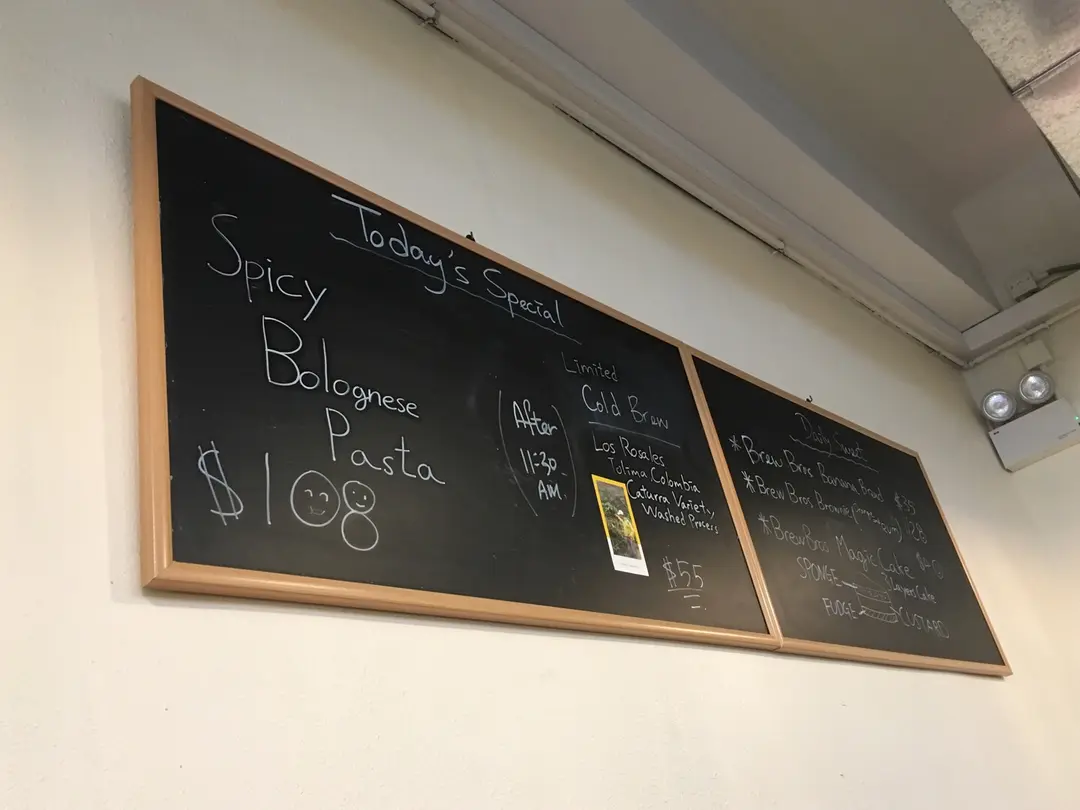 Today's Special
Spicy
Bolognese
Pasta
$108
(After
11:30
AM.)
Limited
Cold Brew
Los Rosales
Tolima Colombia
Caturra Variety
Washed Process
$55
Daily Sweet
*Brew Bros Banana Bread $35
*Brew Bros Brownie ( $28
*Brew Bros Magic Cake
3 Layers Cake
SPONGE
FUDGE
CUSTARD